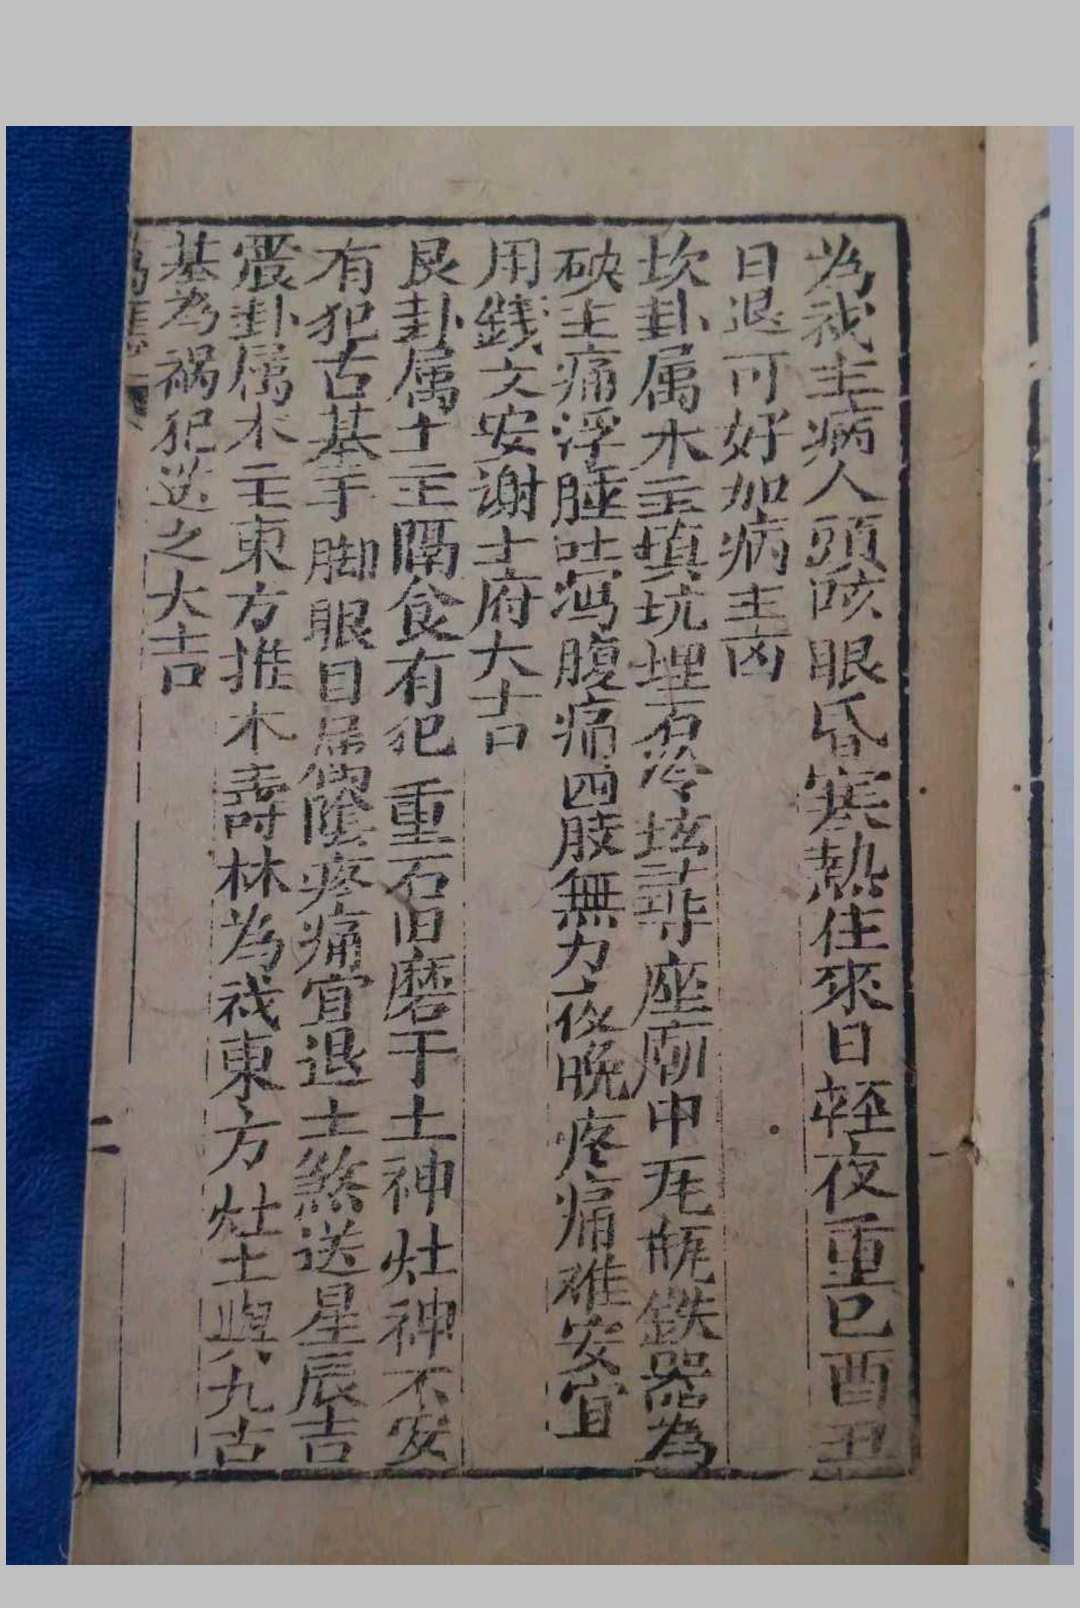 為祅主病人頭咳眼昏寒熱住來日輕夜重巳酉丑
日退可好如病主凶
坎卦属水主填坑埋石冷坛尋座廟中瓦瓶鉄器為
破主痛浮腫吐瀉腹痛四肢無力夜晩疼痛难安宜
用錢文安谢土府大吉
艮卦属土主隔食有犯重石旧磨于土神灶神不安
有犯古基手脚眼目陰疼痛宜退土煞送星辰吉
震卦属木主東方推木壽林為祅東方灶土與九古
基為禍犯送之大吉
二